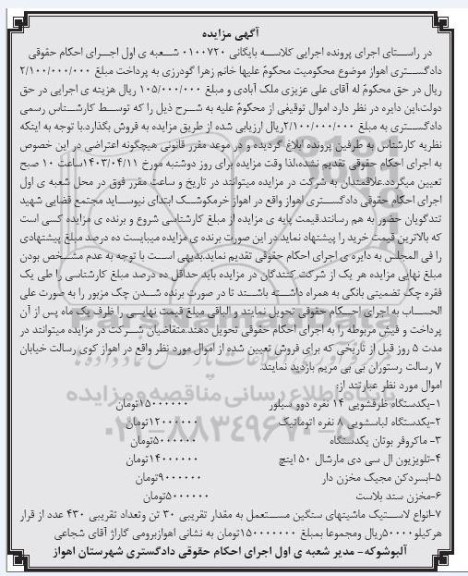 آگهی مزایده
در راستای اجرای پرونده اجرایی کلاسه بایگانی ۰۱۰۰۷۲۰ شعبه ی اول اجرای احکام حقوقی
دادگستری اهواز موضوع محکومیت محکوم علیها خانم زهرا گودرزی به پرداخت مبلغ ۲/۱۰۰/۰۰۰/۰۰۰
ریال در حق محکوم له آقای علی عزیزی ملک آبادی و مبلغ ۱۰۵/۰۰۰/۰۰۰ ریال هزینه ی اجرایی در حق
دولت،این دایره در نظر دارد اموال توقیفی از محکوم علیه به شرح ذیل را که توسط کارشناس رسمی
دادگستری به مبلغ ۲/۱۰۰/۰۰۰/۰۰۰ریال ارزیابی شده از طریق مزایده به فروش بگذارد.با توجه به اینکه
نظریه کارشناس به طرفین پرونده ابلاغ گردیده و در موعد مقرر قانونی هیچگونه اعتراضی در این خصوص
به اجرای احکام حقوقی تقدیم نشده،لذا وقت مزایده برای روز دوشنبه مورخ ۱۴۰۳/۰۴/۱۱ساعت ۱۰ صبح
تعیین میگردد.علاقمندان به شرکت در مزایده میتوانند در تاریخ و ساعت مقرر فوق در محل شعبه ی اول
اجرای احکام حقوقی دادگستری اهواز واقع در اهواز خرمکوشک ابتدای نیوساید مجتمع قضایی شهید
تندگویان حضور به هم رسانند.قیمت پایه ی مزایده از مبلغ کارشناسی شروع و برنده ی مزایده کسی است
که بالاترین قیمت خرید را پیشنهاد نماید در این صورت برنده ی مزایده میبایست ده درصد مبلغ پیشنهادی
را فی المجلس به دایره ی اجرای احکام حقوقی تقدیم نماید.بدیهی است با توجه به عدم مشخص بودن
مبلغ نهایی مزایده هر یک از شرکت کنندگان در مزایده باید حداقل ده درصد مبلغ کارشناسی را طی یک
فقره چک تضمینی بانکی به همراه داشته باشند تا در صورت برنده شدن چک مزبور را به صورت علی
الحساب به اجرای احکام حقوقی تحویل نمایند و الباقی مبلغ قیمت نهایی را ظرف یک ماه پس از آن
پرداخت و فیش مربوطه را به اجرای احکام حقوقی تحویل دهند.متقاضیان شرکت در مزایده میتوانند در
مدت ۵ روز قبل از تاریخی که برای فروش تعیین شده از اموال مورد نظر واقع در اهواز کوی رسالت خیابان
۷ رسالت رستوران بی بی مریم بازدید نمایند.
اموال مورد نظر عبارتند از:
۱-یکدستگاه ظرفشویی ۱۴ نفره دوو سیلور ۱۵۰۰۰۰۰۰تومان
۲-یکدستگاه لباسشویی ۸ نفره اتوماتیک ۱۲۰۰۰۰۰۰تومان
۳- ماکروفر بوتان یکدستگاه ۵۰۰۰۰۰۰تومان
۴-تلویزیون ال سی دی مارشال ۵۰ اینچ ۱۴۰۰۰۰۰۰تومان
۵-ابسردکن مجیک مخزن دار ۹۰۰۰۰۰۰تومان
۶-مخزن سند بلاست ۵۰۰۰۰۰۰تومان
۷-انواع لاستیک ماشینهای سنگین مستعمل به مقدار تقریبی ۳۰ تن وتعداد تقریبی ۴۳۰ عدد از قرار
هرکیلو۵۰۰۰۰ریال ومجموعا بمبلغ ۱۵۰۰۰۰۰۰۰تومان به نشانی اهوازبرومی گاراژ آقای شجاعی
آلبوشوکه- مدیر شعبه ی اول اجرای احکام حقوقی دادگستری شهرستان اهواز